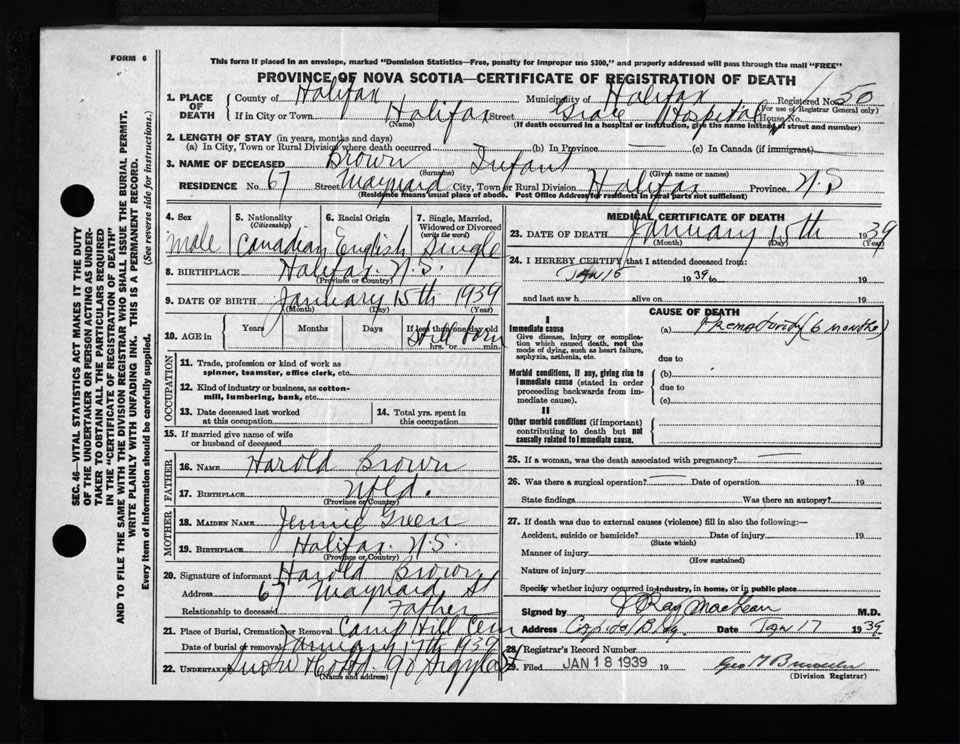 FORM 6
This form if placed in an envelope, marked "Dominion Statistics—Free, penalty for improper use $300," and properly addressed will pass through the mail "FREE"
PROVINCE OF NOVA SCOTIA—CERTIFICATE OF REGISTRATION OF DEATH
1. PLACE OF DEATH
County of Halifax Municipality of Halifax Registered No. 50
(For use of Registrar General only)
If in City or Town Halifax Street Grace Hospital House No.
(Name) (If death occurred in a hospital or institution, give the name instead of street and number)
2. LENGTH OF STAY (in years, months and days)
(a) In City, Town or Rural Division where death occurred (b) In Province — (c) In Canada (if immigrant)
3. NAME OF DECEASED Brown Infant
(Surname) (Given name or names)
RESIDENCE No. 67 Street Maynard City, Town or Rural Division Halifax Province N.S
(Residence means usual place of abode. Post Office Address for residents in rural parts not sufficient)
4. Sex 5. Nationality (Citizenship) 6. Racial Origin 7. Single, Married, Widowed or Divorced (write the word)
Male Canadian English Single
8. BIRTHPLACE Halifax. N.S.
(Province or Country)
9. DATE OF BIRTH January 15th 1939
(Month) (Day) (Year)
10. AGE in Years Months Days If less than one day old
Still born
hrs. or min.
OCCUPATION
11. Trade, profession or kind of work as spinner, teamster, office clerk, etc.
12. Kind of industry or business, as cotton-mill, lumbering, bank, etc.
13. Date deceased last worked at this occupation
14. Total yrs. spent in this occupation
15. If married give name of wife or husband of deceased
FATHER
16. NAME Harold Brown
17. BIRTHPLACE Nfld.
(Province or Country)
MOTHER
18. MAIDEN NAME Jennie Green
19. BIRTHPLACE Halifax. N.S.
(Province or Country)
20. Signature of informant Harold Brown
Address 67 Maynard St
Relationship to deceased Father
21. Place of Burial, Cremation or Removal Camp Hill Cem
Date of burial or removal January 17th 1939
22. UNDERTAKER Snow 90 Argyle St
(Name and address)
MEDICAL CERTIFICATE OF DEATH
23. DATE OF DEATH January 15th 1939
(Month) (Day) (Year)
24. I HEREBY CERTIFY that I attended deceased from:
Jan 15 1939 to 19
and last saw h alive on 19
CAUSE OF DEATH
I
Immediate cause
Give disease, injury or complication which caused death, not the mode of dying, such as heart failure, asphyxia, asthenia, etc.
(a) Prematurity (6 months)
due to
Morbid conditions, if any, giving rise to immediate cause (stated in order proceeding backwards from immediate cause).
(b)
due to
(c)
II
Other morbid conditions (if important) contributing to death but not causally related to immediate cause.
25. If a woman, was the death associated with pregnancy? —
26. Was there a surgical operation? — Date of operation 19
State findings Was there an autopsy?
27. If death was due to external causes (violence) fill in also the following:—
Accident, suicide or homicide? Date of injury 19
(State which)
Manner of injury
(How sustained)
Nature of injury
Specify whether injury occurred in industry, in home, or in public place
Signed by J Ray MacLean M.D.
Address Capitol Bldg. Date Jan 17 1939
28. Registrar's Record Number
29. Filed JAN 18 1939 19 Geo M
(Division Registrar)
SEC. 46—VITAL STATISTICS ACT MAKES IT THE DUTY
OF THE UNDERTAKER OR PERSON ACTING AS UNDER-
TAKER TO OBTAIN ALL THE PARTICULARS REQUIRED
IN THE "CERTIFICATE OF REGISTRATION OF DEATH"
AND TO FILE THE SAME WITH THE DIVISION REGISTRAR WHO SHALL ISSUE THE BURIAL PERMIT.
WRITE PLAINLY WITH UNFADING INK. THIS IS A PERMANENT RECORD.
Every item of information should be carefully supplied. (See reverse side for instructions.)